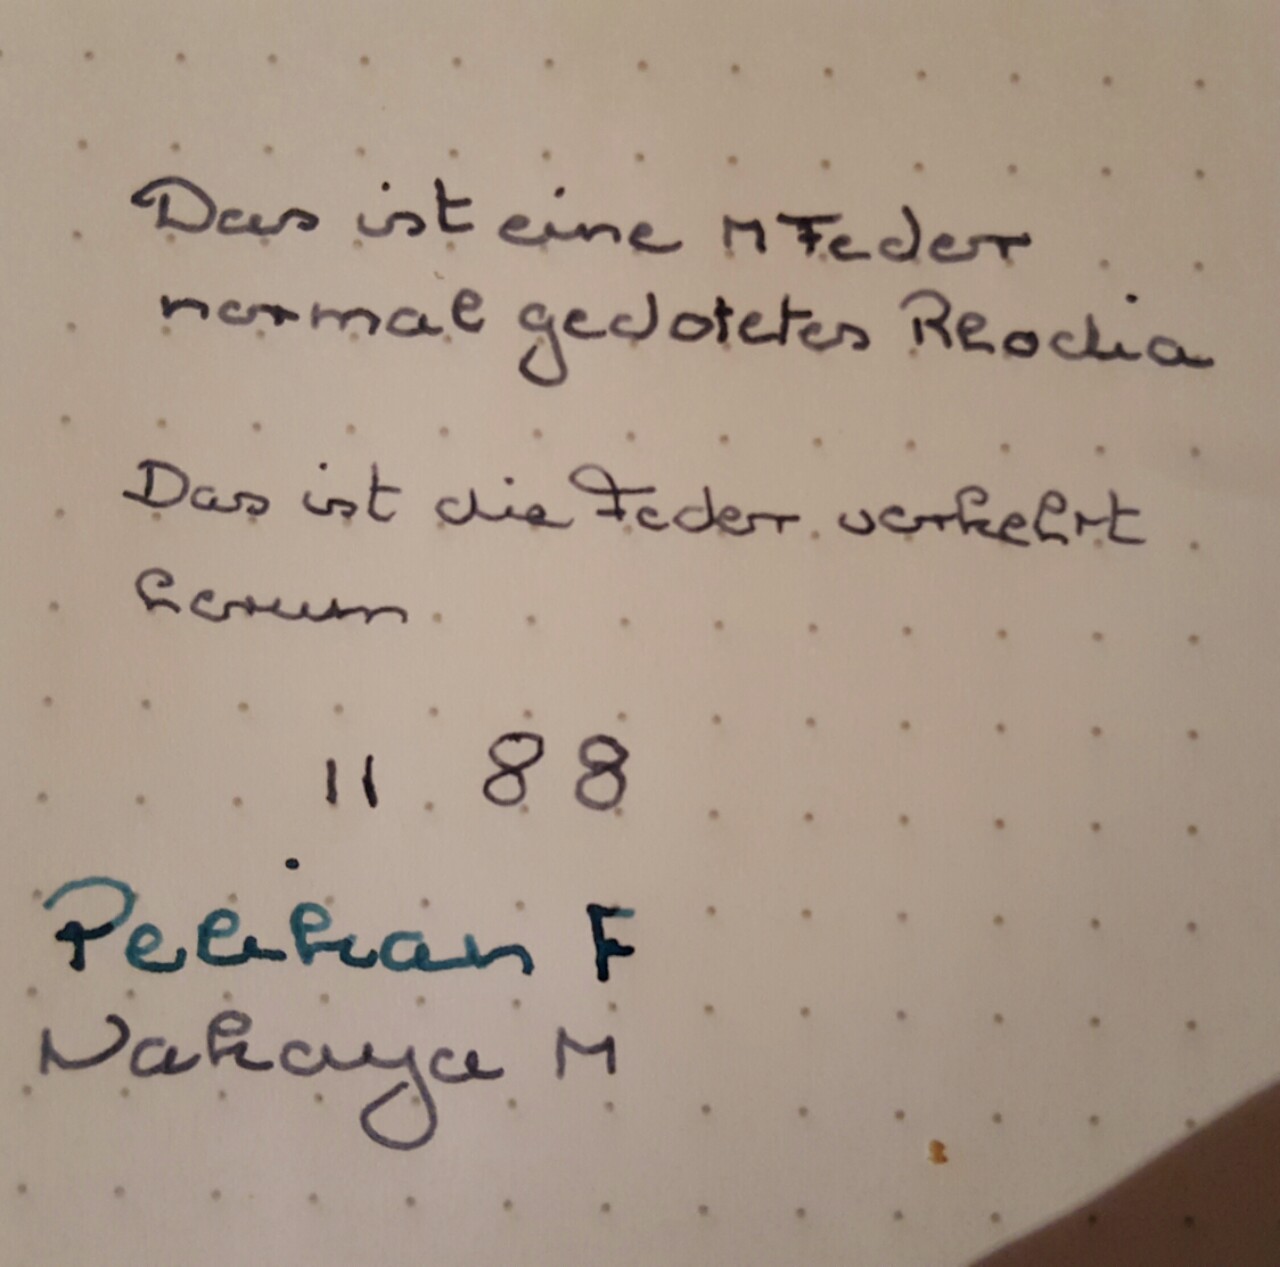 Das ist eine M Feder
normal gedotetes Rhodia
Das ist die Feder verkehrt
herum
11 88
Pelikan F
Nakaya M